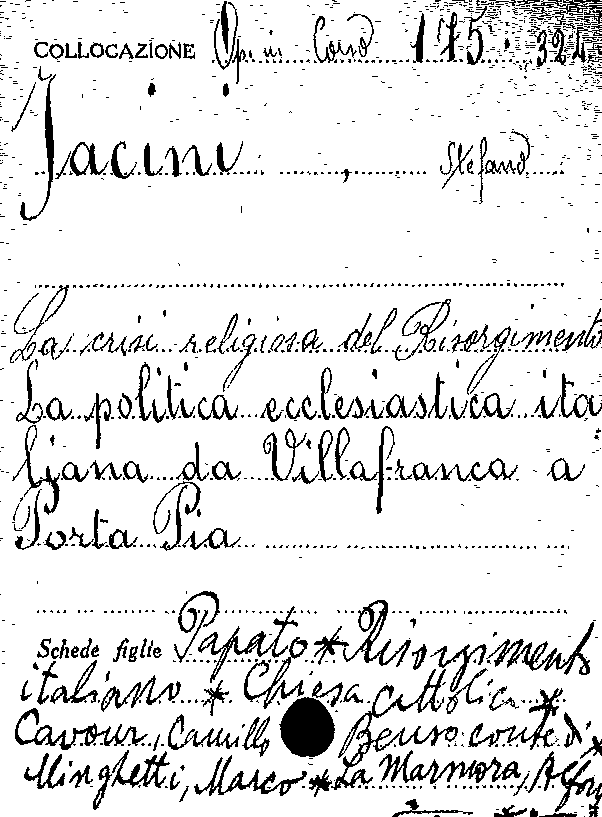 COLLOCAZIONE Op. in Corso 175. 324
Jacini, Stefano
La crisi religiosa del Risorgimento
La politica ecclesiastica ita
liana da Villafranca a
Porta Pia
Schede figlie Papato * Risorgimento
italiano * Chiesa cattolica *
Cavour, Camillo Benso conte di *
Minghetti, Marco * La Marmora, Alfon